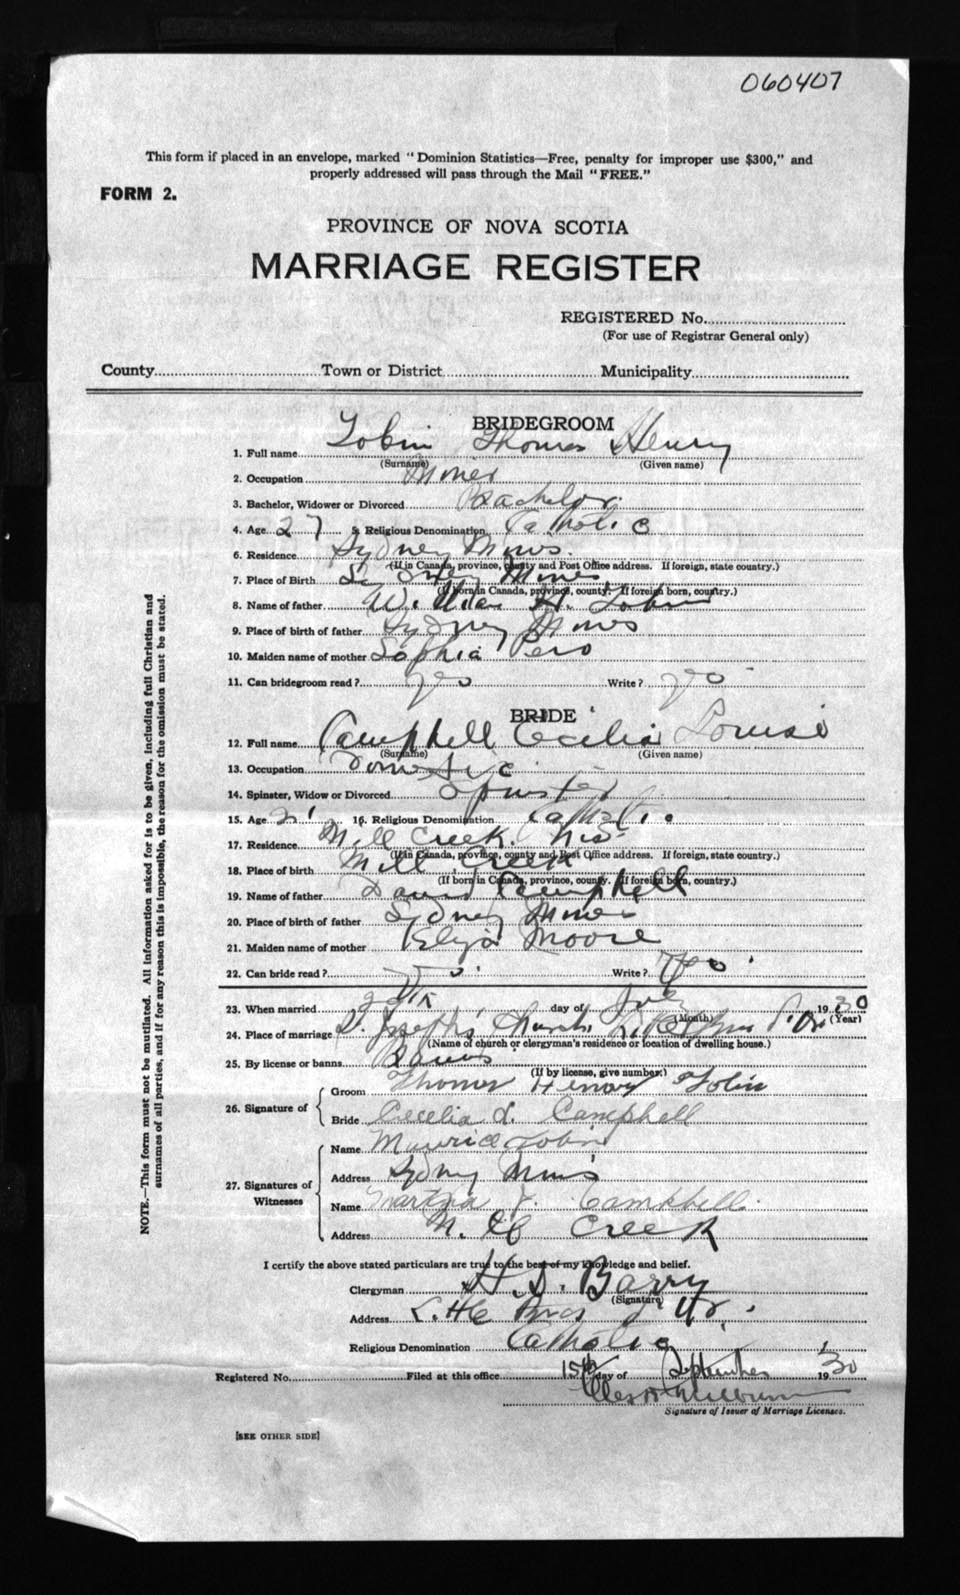 060407
This form if placed in an envelope, marked "Dominion Statistics—Free, penalty for improper use $300," and
properly addressed will pass through the Mail "FREE."
FORM 2.
PROVINCE OF NOVA SCOTIA
MARRIAGE REGISTER
REGISTERED No.
(For use of Registrar General only)
County Town or District Municipality
BRIDEGROOM
1. Full name Tobin Thomas Henry
(Surname) (Given name)
2. Occupation Miner
3. Bachelor, Widower or Divorced Bachelor
4. Age 27 5. Religious Denomination Catholic
6. Residence Sydney Mines.
(If in Canada, province, county and Post Office address. If foreign, state country.)
7. Place of Birth Sydney Mines
(If born in Canada, province, county. If foreign born, country.)
8. Name of father William H. Tobin
9. Place of birth of father Sydney Mines
10. Maiden name of mother Sophia Pero
11. Can bridegroom read? yes Write? yes
BRIDE
12. Full name Campbell Cecilia Louise
(Surname) (Given name)
13. Occupation Domestic
14. Spinster, Widow or Divorced Spinster
15. Age 21 16. Religious Denomination Catholic
17. Residence Mill Creek. N.S.
(If in Canada, province, county and Post Office address. If foreign, state country.)
18. Place of birth Mill Creek
(If born in Canada, province, county. If foreign born, country.)
19. Name of father Campbell
20. Place of birth of father Sydney Mines
21. Maiden name of mother Eliza Moore
22. Can bride read? Yes Write? Yes
23. When married day of July 1930
(Month) (Year)
24. Place of marriage St. Joseph's Church,
(Name of church or clergyman's residence or location of dwelling house.)
25. By license or banns Banns
(If by license, give number.)
26. Signature of
Groom Thomas Henry Tobin
Bride Cecelia L. Campbell
27. Signatures of Witnesses
Name Maurice Tobin
Address Sydney Mines
Name J. Campbell.
Address Mill Creek
I certify the above stated particulars are true to the best of my knowledge and belief.
Clergyman H. D. Barry
(Signature)
Address Little Bras d'Or.
Religious Denomination Catholic
Registered No. Filed at this office 15th day of September 1930
Signature of Issuer of Marriage Licenses.
[SEE OTHER SIDE]
NOTE.—This form must not be mutilated. All information asked for is to be given, including full Christian and
surnames of all parties, and if for any reason this is impossible, the reason for the omission must be stated.